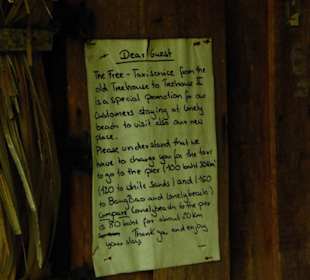 Dear Guest
The Free - Taxiservice from the
old Treehouse to Treehouse II
is a special promotion for our
customers staying at lonely
beach to visit also our new
place.
Please understand that we
have to charge you for the taxi
to go to the pier (100 baht 30km)
(120 to white sands) and (150
to BangBao and Lonelybeach)
compare Lonelybeach to the pier
is 80 baht for about 20km
Thank you and enjoy
your stay